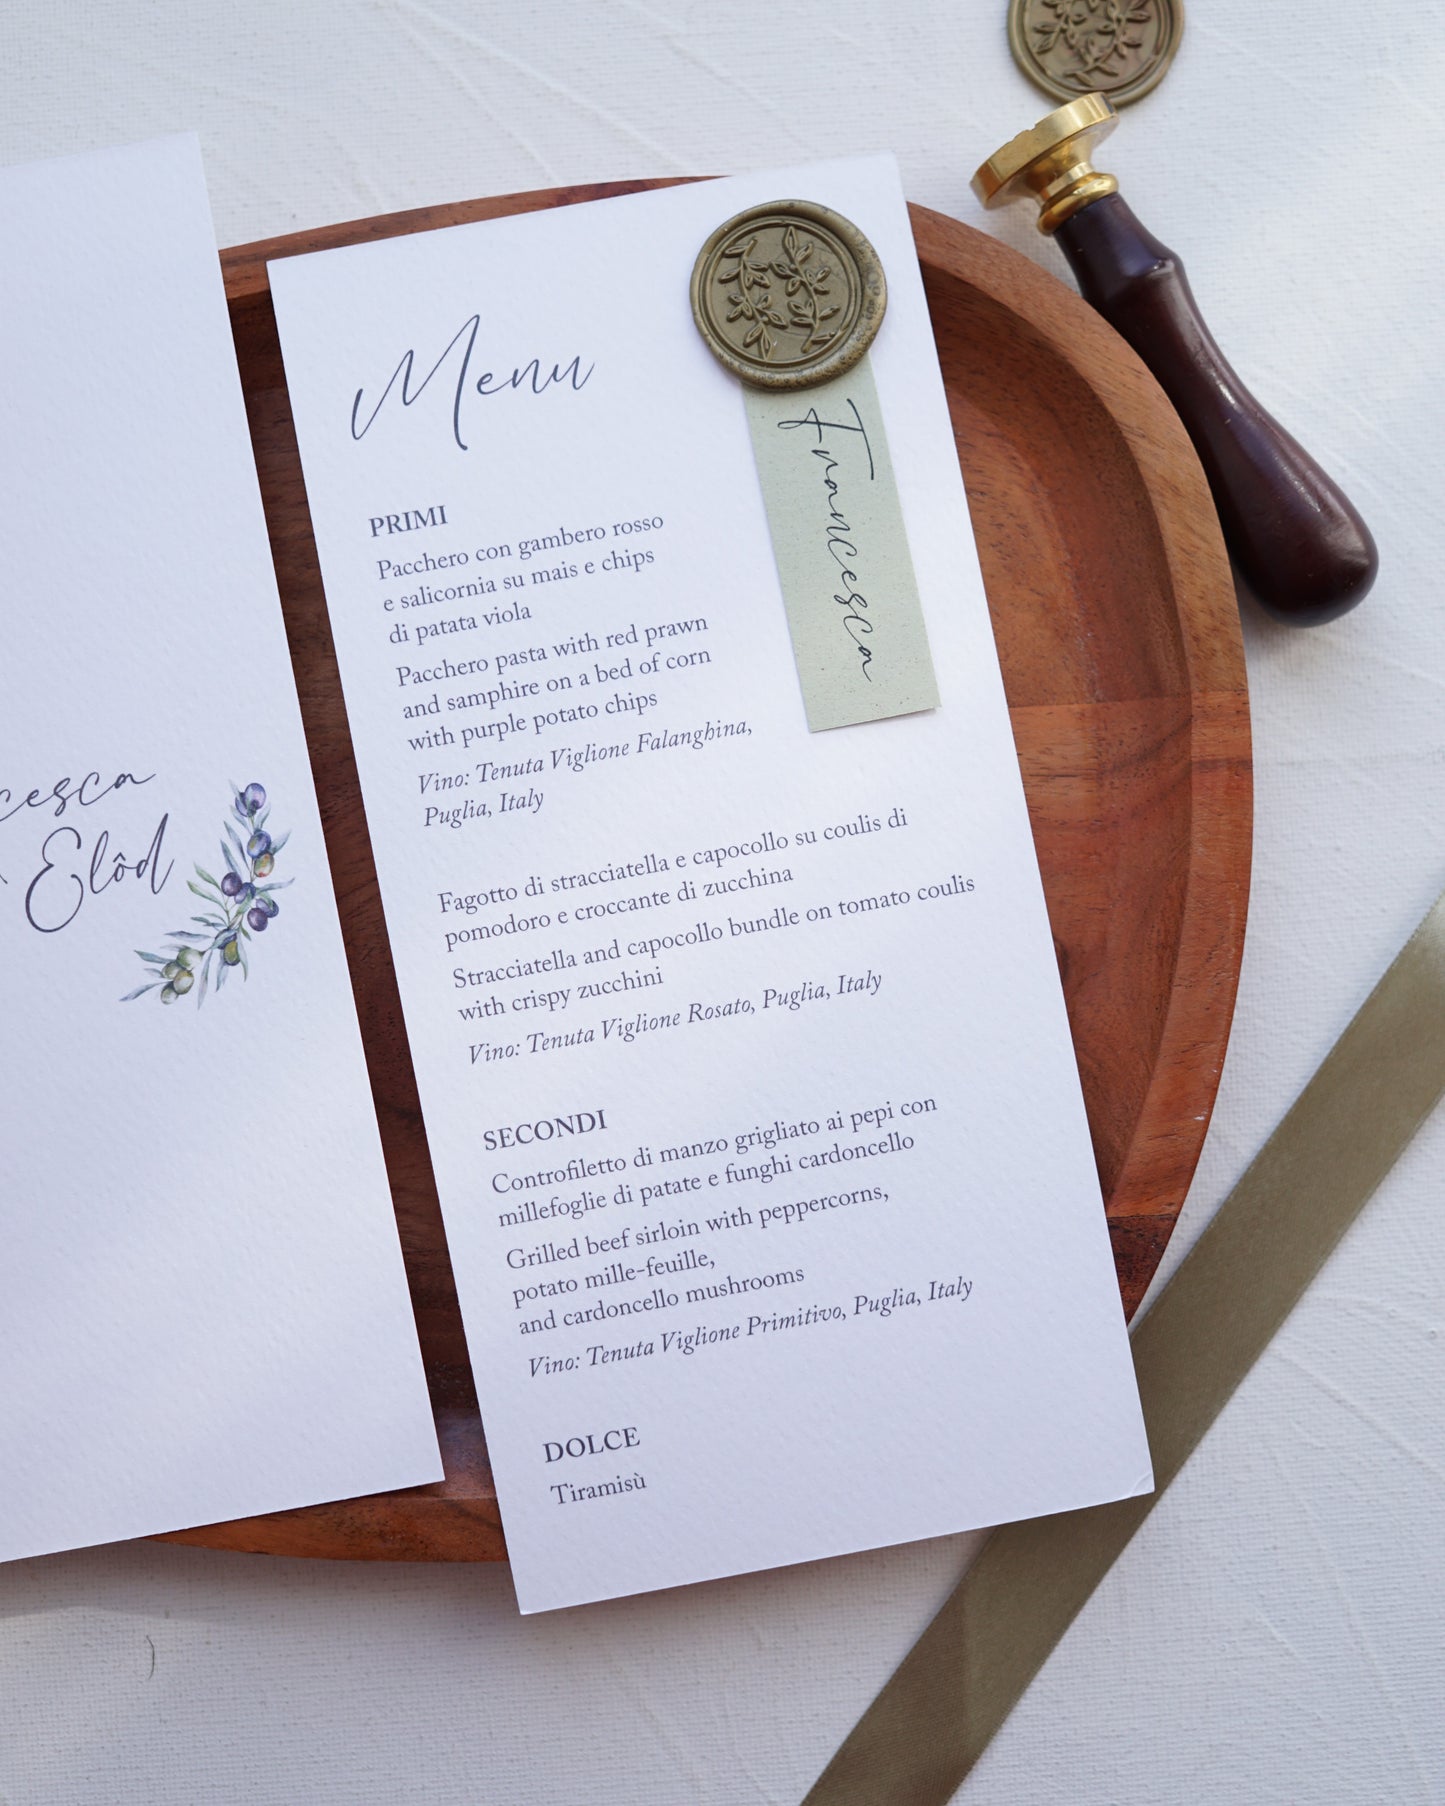 Menu
Francesca
PRIMI
Pacchero con gambero rosso
e salicornia su mais e chips
di patata viola
Pacchero pasta with red prawn
and samphire on a bed of corn
with purple potato chips
Vino: Tenuta Viglione Falanghina,
Puglia, Italy
Fagotto di stracciatella e capocollo su coulis di
pomodoro e croccante di zucchina
Stracciatella and capocollo bundle on tomato coulis
with crispy zucchini
Vino: Tenuta Viglione Rosato, Puglia, Italy
SECONDI
Controfiletto di manzo grigliato ai pepi con
millefoglie di patate e funghi cardoncello
Grilled beef sirloin with peppercorns,
potato mille-feuille,
and cardoncello mushrooms
Vino: Tenuta Viglione Primitivo, Puglia, Italy
DOLCE
Tiramisù
cesca
Elôd